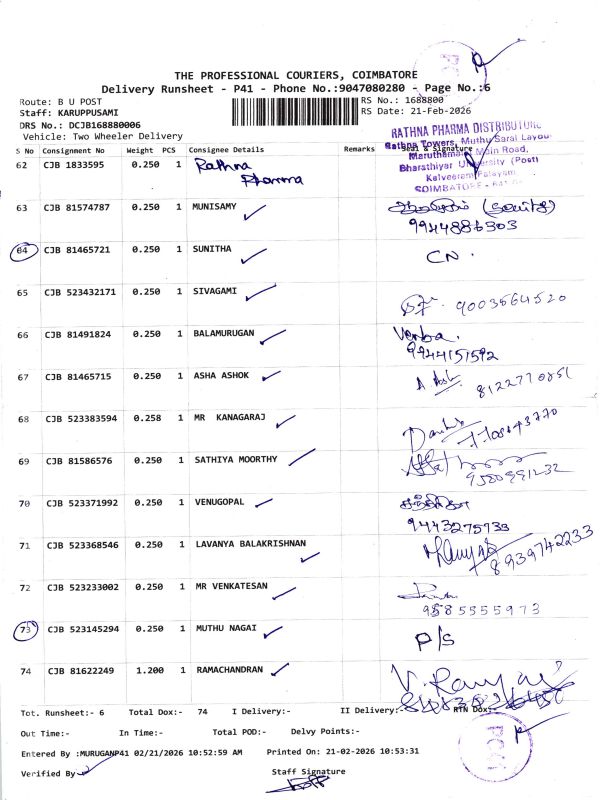 THE PROFESSIONAL COURIERS, COIMBATORE
Delivery Runsheet - P41 - Phone No.:9047080280 - Page No.:6
Route: B U POST
RS No.: 1688800
Staff: KARUPPUSAMI
RS Date: 21-Feb-2026
DRS No.: DCJB168880006
Vehicle: Two Wheeler Delivery
RATHNA PHARMA DISTRIBUTORS
Rathna Towers, Muthu Saral Layout
Maruthamalai Main Road,
Bharathiyar University (Post)
Kalveerampalayam
COIMBATORE - 641
S No Consignment No Weight PCS Consignee Details Remarks Seal & Signature
62 CJB 1833595 0.250 1 Rathna Pharma
63 CJB 81574787 0.250 1 MUNISAMY 9944886303
64 CJB 81465721 0.250 1 SUNITHA CN.
65 CJB 523432171 0.250 1 SIVAGAMI 9003564520
66 CJB 81491824 0.250 1 BALAMURUGAN 9944151592
67 CJB 81465715 0.250 1 ASHA ASHOK 8122770851
68 CJB 523383594 0.258 1 MR KANAGARAJ
69 CJB 81586576 0.250 1 SATHIYA MOORTHY 9580991232
70 CJB 523371992 0.250 1 VENUGOPAL 9443275733
71 CJB 523368546 0.250 1 LAVANYA BALAKRISHNAN 8939742233
72 CJB 523233002 0.250 1 MR VENKATESAN 9585555973
73 CJB 523145294 0.250 1 MUTHU NAGAI P/S
74 CJB 81622249 1.200 1 RAMACHANDRAN
Tot. Runsheet:- 6 Total Dox:- 74 I Delivery:- II Delivery:- RTN Dox:-
Out Time:- In Time:- Total POD:- Delvy Points:-
Entered By :MURUGANP41 02/21/2026 10:52:59 AM Printed On: 21-02-2026 10:53:31
Verified By
Staff Signature